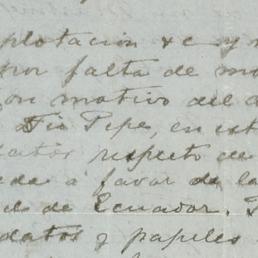 plotacion &c y
por falta de
con motivo del
Tio Pepe, en est
datos respecto de
a favor de la
d de Ecuador.
datos y papeles